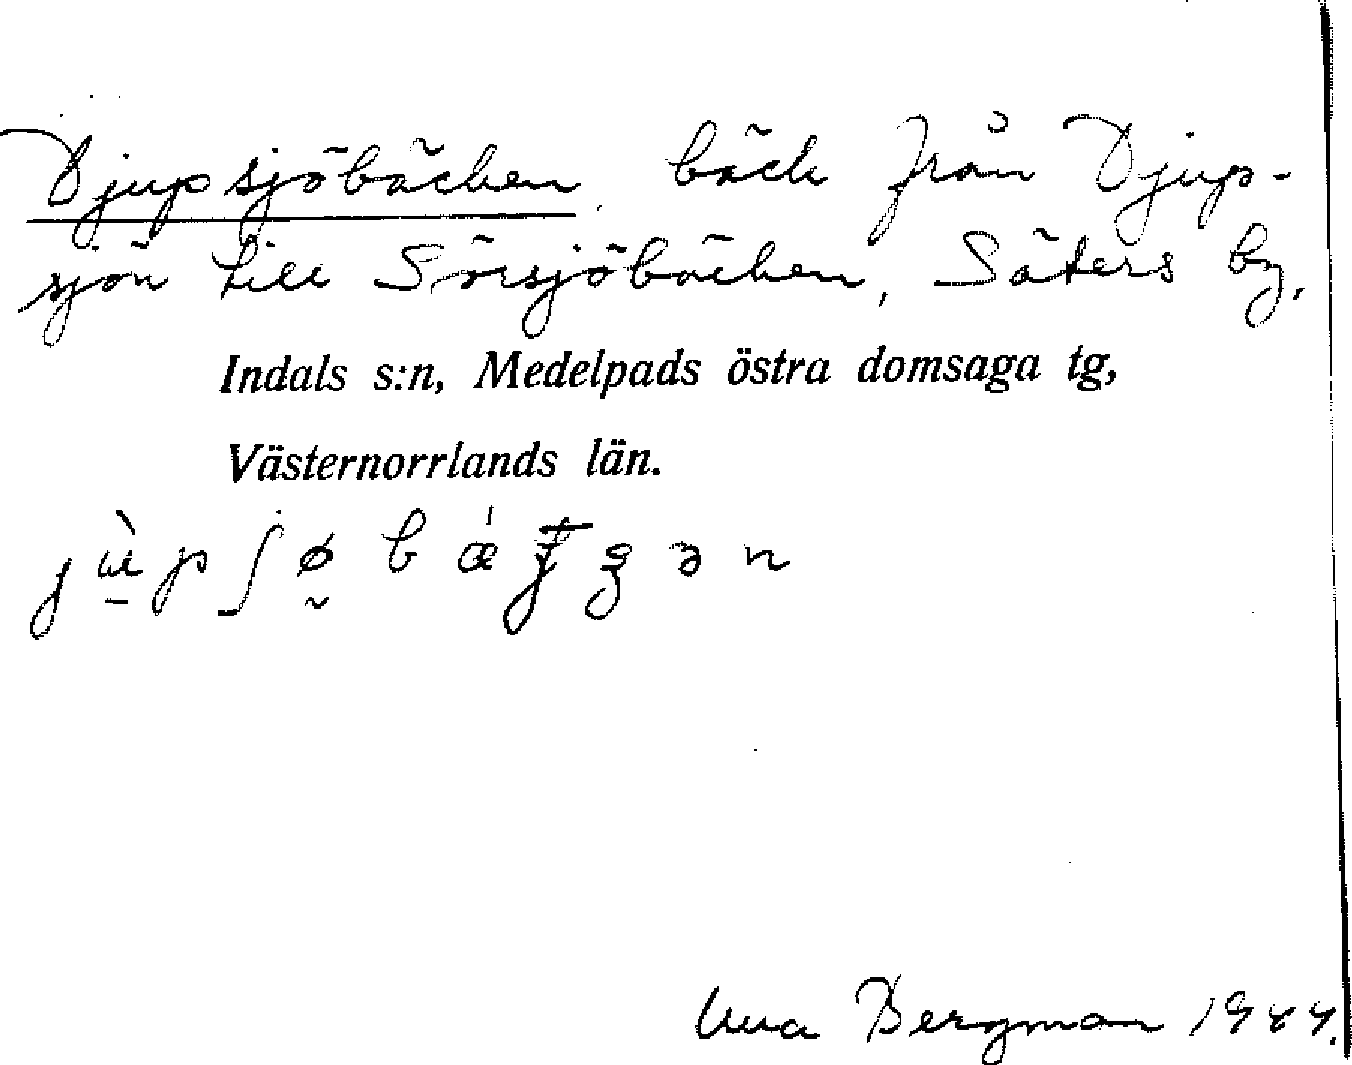 Djupsjöbäcken, bäck från Djup-
sjön till Sörsjöbäcken, Säters by,
Indals s:n, Medelpads östra domsaga tg,
Västernorrlands län.
Bergman 1944.